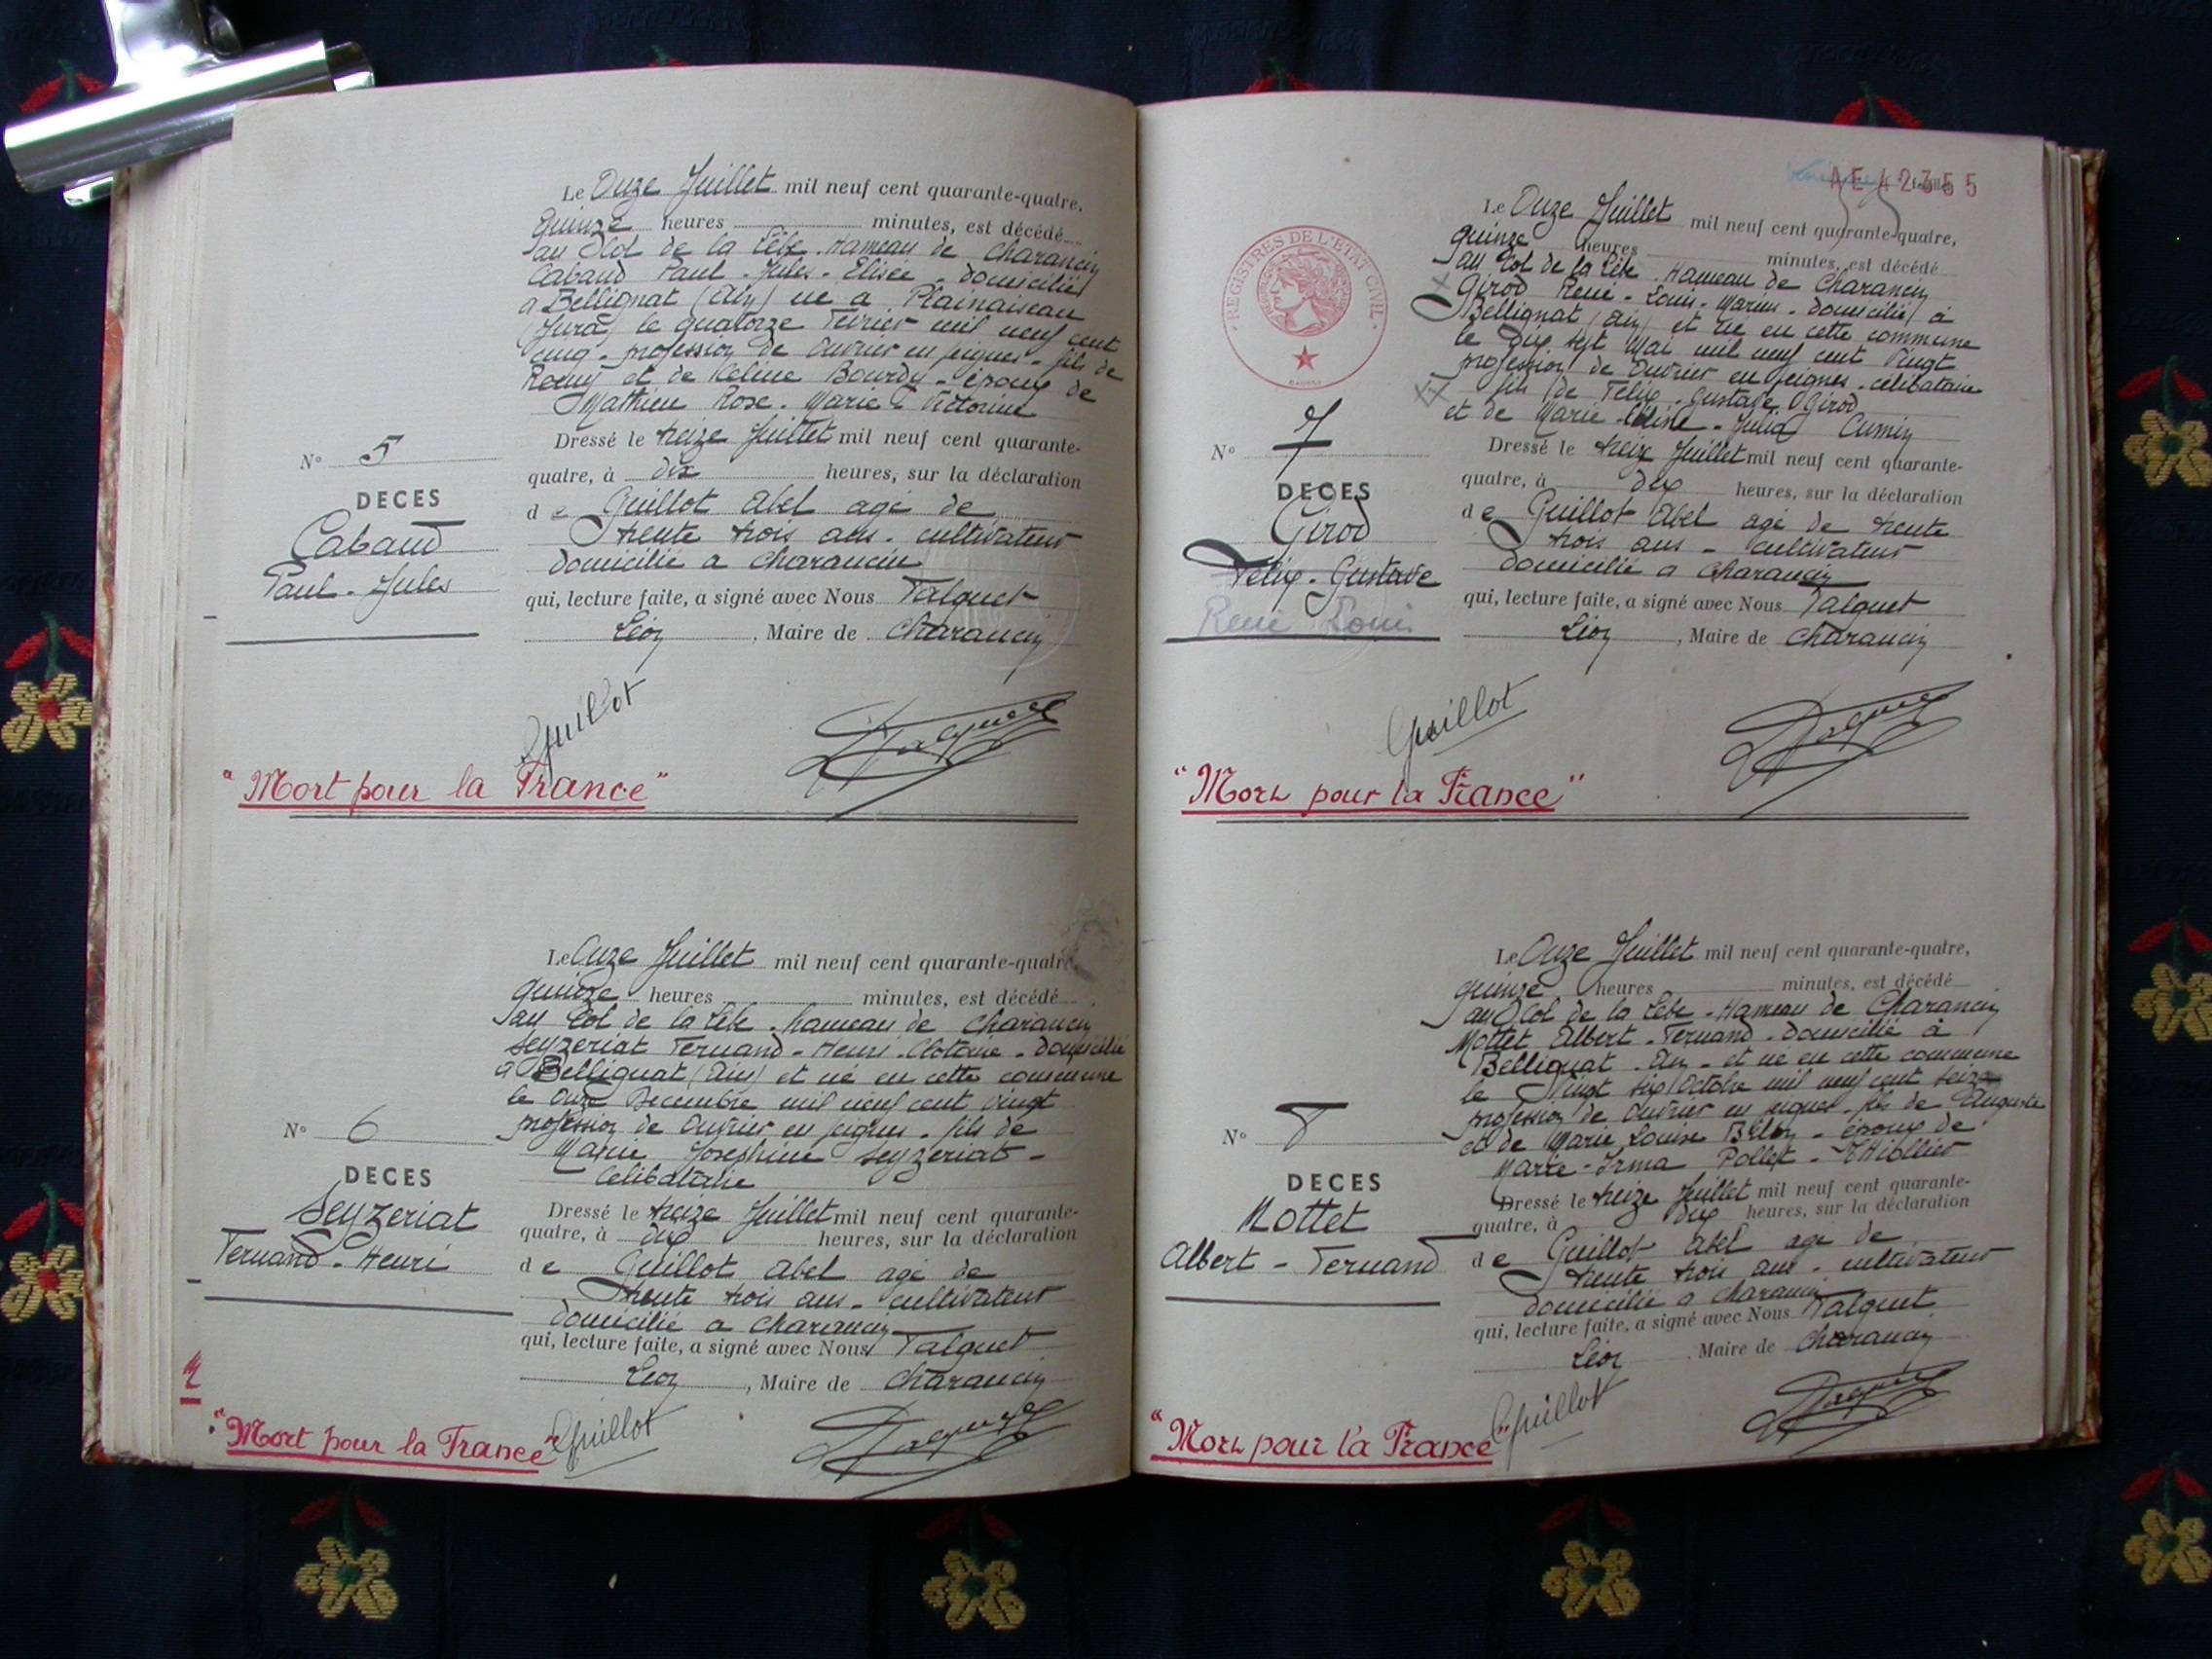 Le Onze Juillet mil neuf cent quarante-quatre,
quinze heures minutes, est décédé
au Col de la Lèbe. Hameau de Charancin
Cabaud Paul-Jules-Elisée-domicilié
à Bellignat (Ain) né à Plainoiseau
(Jura) le quatorze Février mil neuf cent
cinq-profession de Ouvrier en peignes-fils de
Remy et de Céline Bourdy-époux de
Mathieu Rose-Marie Victorine
Nº 5
DECES
Cabaud
Paul-Jules
Dressé le treize Juillet mil neuf cent quarante-
quatre, à dix heures, sur la déclaration
de Guillot Abel agé de
trente trois ans. cultivateur
domicilié a Charancin
qui, lecture faite, a signé avec Nous Talguet
Léon, Maire de Charancin
Guillot
"Mort pour la France"
Le Onze Juillet mil neuf cent quarante-quatre,
quinze heures minutes, est décédé
au Col de la Lèbe. hameau de Charancin
Seyzeriat Fernand-Henri-Clotaire-domicilié
à Bellignat (Ain) et né en cette commune
le Onze Decembre mil neuf cent vingt
profession de Ouvrier en peignes-fils de
Marie Josephine Seyzeriat-
Celibataire
Nº 6
DECES
Seyzeriat
Fernand-Henri
Dressé le treize Juillet mil neuf cent quarante-
quatre, à dix heures, sur la déclaration
de Guillot Abel agé de
trente trois ans-cultivateur
domicilié a Charancin
qui, lecture faite, a signé avec Nous Talguet
Léon, Maire de Charancin
"Mort pour la France"
Guillot
AE 42355
REGISTRES DE L'ETAT CIVIL
Le Onze Juillet mil neuf cent quarante-quatre,
quinze heures minutes, est décédé
au Col de la Lèbe. Hameau de Charancin
Girod René-Louis-Marius-domicilié à
Bellignat (Ain) et né en cette commune
le Dix sept Mai mil neuf cent vingt
profession de Ouvrier en peignes-célibataire
fils de Félix-Gustave Girod
et de Marie Céline-Julia Cumin
Nº 7
DECES
Girod
Félix-Gustave
René Louis
Dressé le treize Juillet mil neuf cent quarante-
quatre, à dix heures, sur la déclaration
de Guillot Abel agé de trente
trois ans-cultivateur
domicilié a Charancin
qui, lecture faite, a signé avec Nous Talguet
Léon, Maire de Charancin
Guillot
"Mort pour la France"
Le Onze Juillet mil neuf cent quarante-quatre,
quinze heures minutes, est décédé
au Col de la Lèbe-Hameau de Charancin
Mottet Albert-Fernand-domicilié à
Bellignat-Ain-et né en cette commune
le Vingt six Octobre mil neuf cent seize
profession de Ouvrier en peignes-fils de Auguste
et de Marie Louise-époux de
Marie-Irma
Nº 8
DECES
Mottet
Albert-Fernand
Dressé le treize Juillet mil neuf cent quarante-
quatre, à dix heures, sur la déclaration
de Guillot Abel agé de
trente trois ans-cultivateur
domicilié a Charancin
qui, lecture faite, a signé avec Nous Talguet
Léon Maire de Charancin
"Mort pour la France"
Guillot